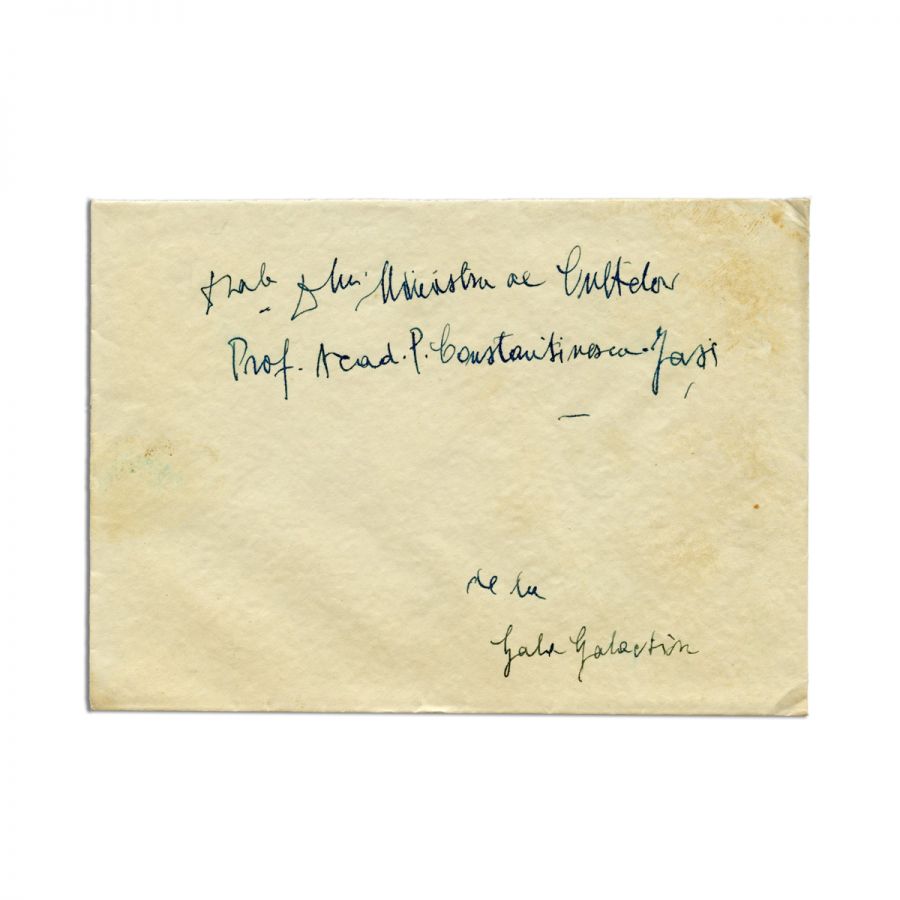 Dlui Ministru al Cultelor
Prof. Acad. P. Constantinescu-Iași
de la
Gala Galaction